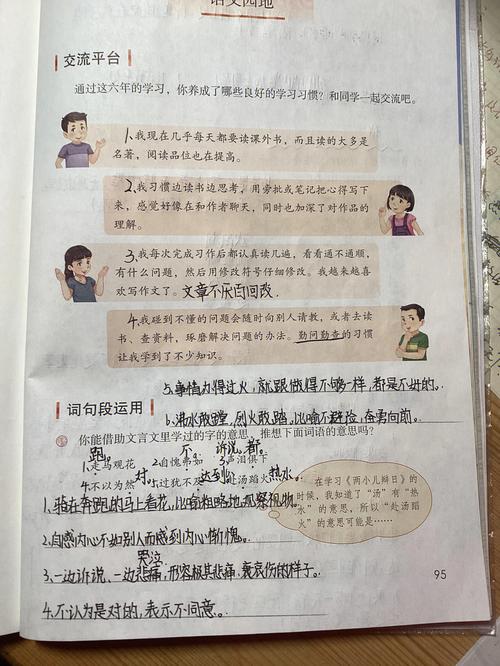 语文园地
交流平台
通过这六年的学习，你养成了哪些良好的学习习惯？和同学一起交流吧。
1、我现在几乎每天都要读课外书，而且读的大多是
名著，阅读品位也在提高。
2、我习惯边读书边思考，用旁批或笔记把心得写下
来，感觉好像在和作者聊天，同时也加深了对作品的
理解。
3、我每次完成习作后都认真读几遍，看看通不通顺，
有什么问题，然后用修改符号仔细修改。我越来越喜
欢写作文了。文章不厌百回改.
4、我碰到不懂的问题会随时向别人请教，或者去读
书、查资料，琢磨解决问题的办法。勤问勤查的习惯
让我学到了不少知识。
5、事情力得过火，就跟做得不够一样，都是不好的。
词句段运用
6、沸水敢蹚，烈火敢踏，比喻不避险，奋勇向前。
你能借助文言文里学过的字的意思，推想下面词语的意思吗？
跑。 不。 诉说。都。
1.走马观花 2.自愧弗如 3.声泪俱下
对。 达到。 热水。
4.不以为然 过犹不及 赴汤蹈火
在学习《两小儿辩日》的
时候，我知道了“汤”有“热
水”的意思，所以“赴汤蹈
火”的意思可能是……
1、骑在奔跑的马上看花，比喻粗略地观察事物。
2、自感内心不如别人而感到内心惭愧。
哭泣
3、一边诉说、一边悲痛，形容极其悲痛、哀伤的样子。
4、不认为是对的，表示不同意。
95